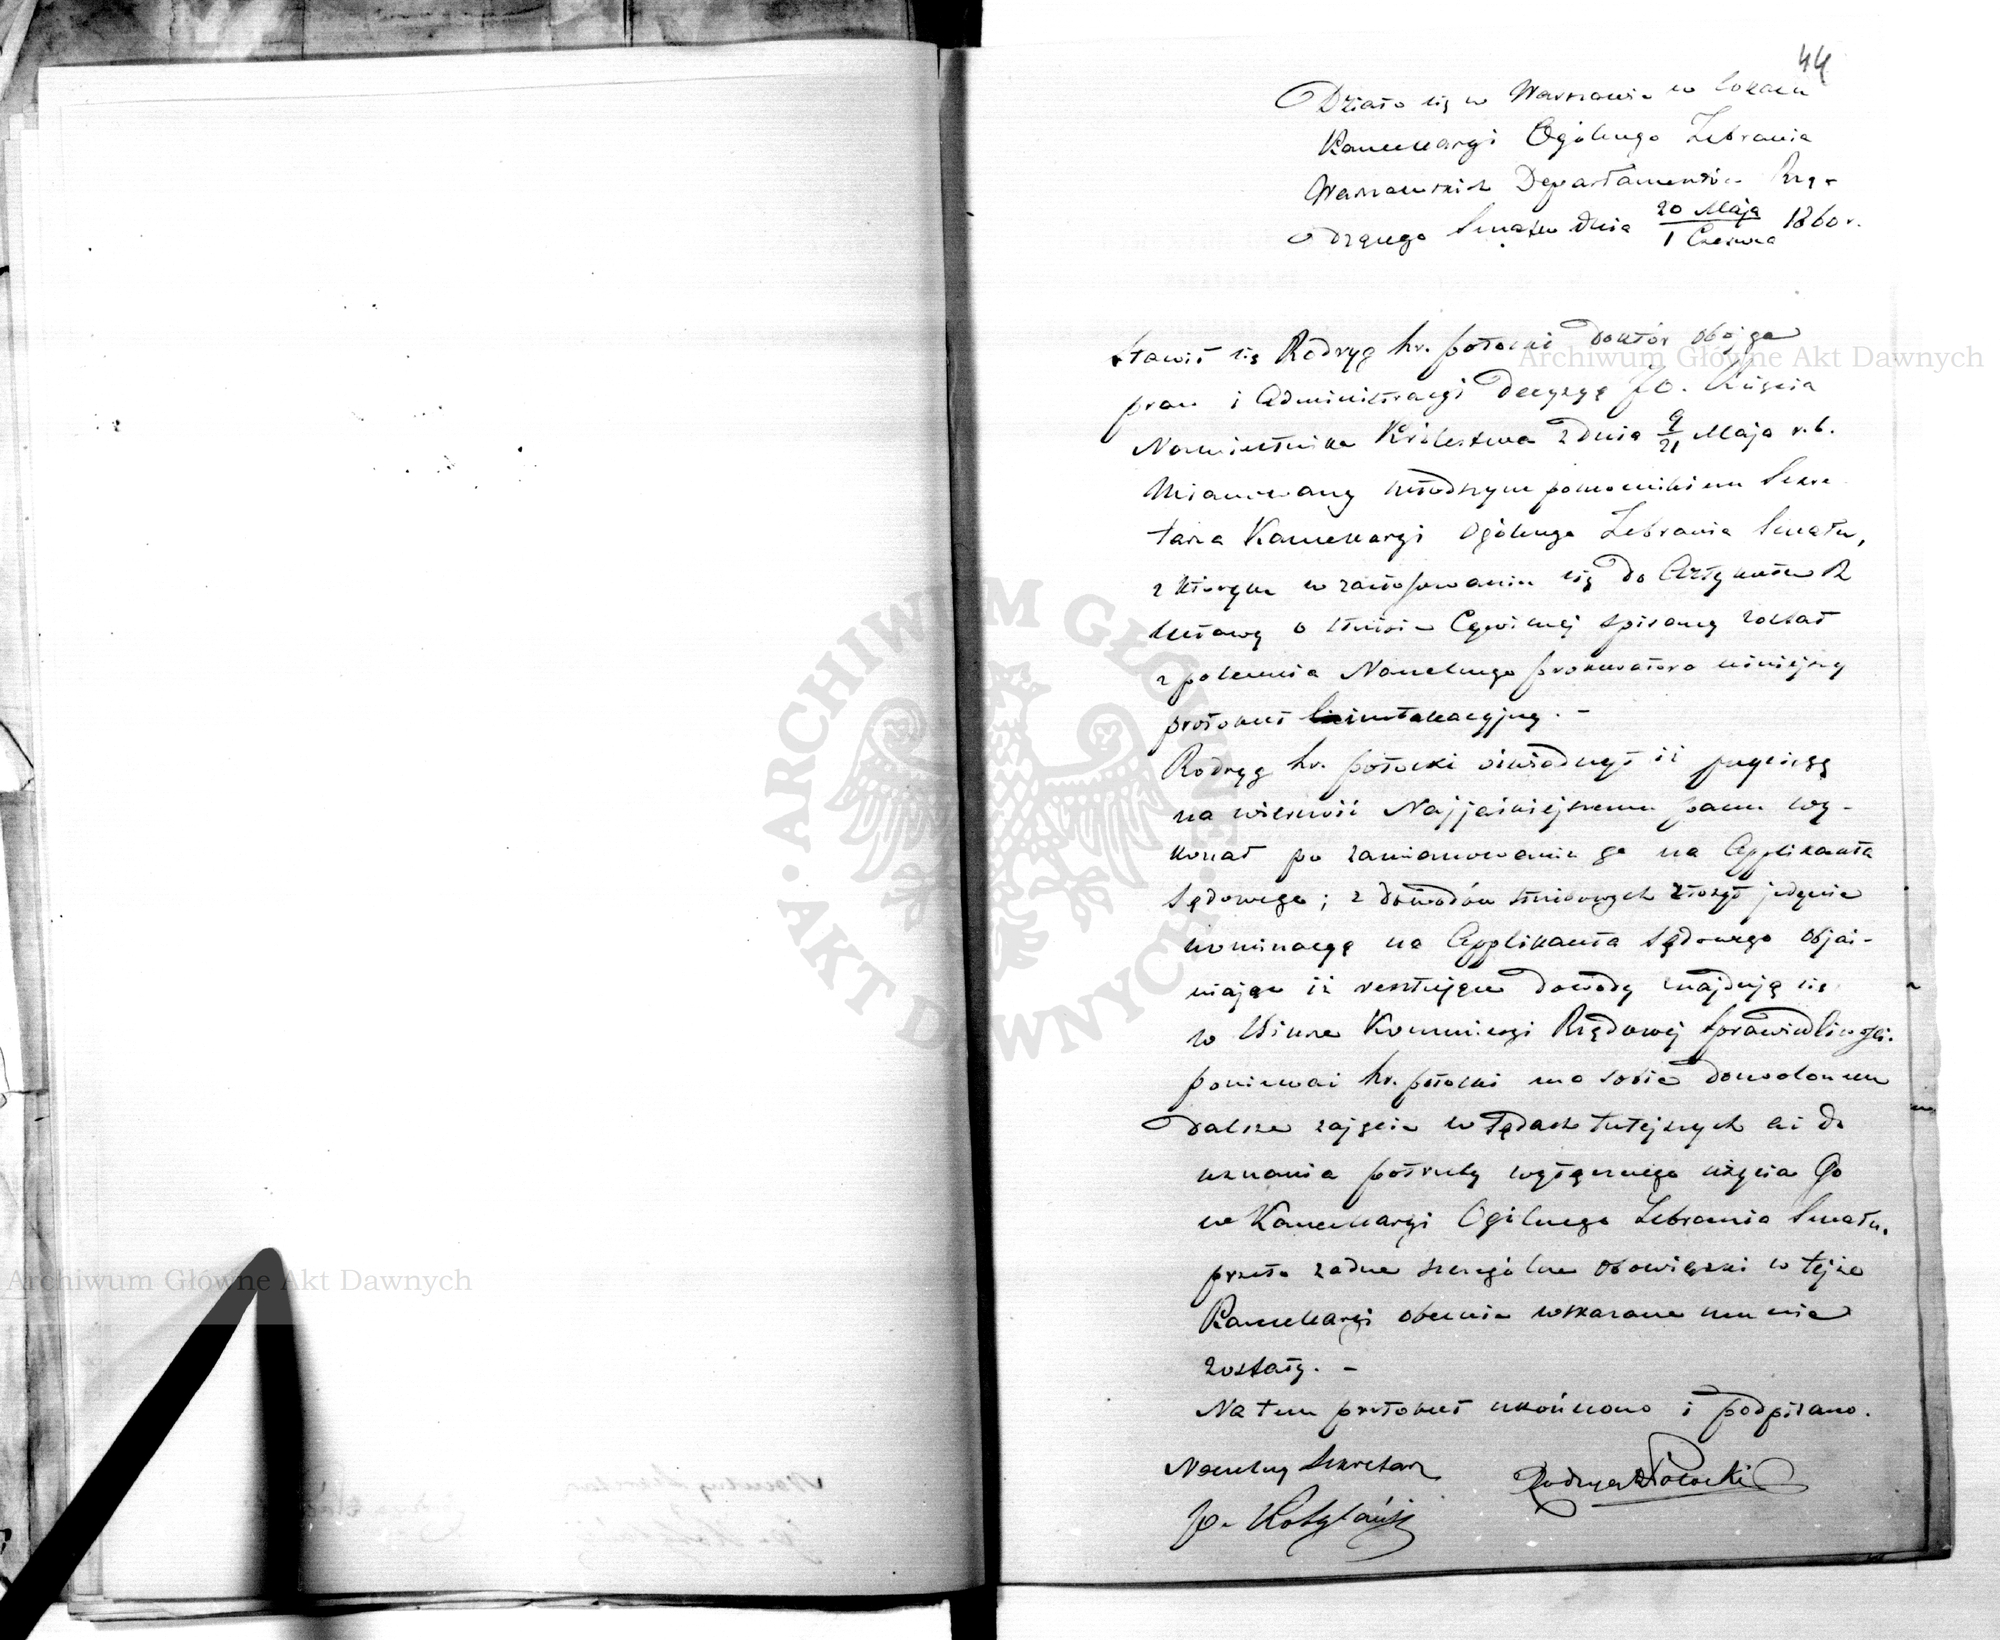 44
Działo się w Warszawie w lokalu
Kancellaryi Ogólnego Zebrania
Warszawskich Departamentów Rzą-
dzącego Senatu dnia 20 Maja / 1 Czerwca 1860 r.
Stawił się Rodryg hr. Potocki Doktór obojga
praw i Administracyi Decyzyą JO. Księcia
Namiestnika Królestwa z dnia 9/21 Maja r. b.
Mianowany młodszym pomocnikiem Sekre-
tarza Kancellaryi Ogólnego Zebrania Senatu,
z którym w zastosowaniu się do Artykułu
Ustawy o służbie Cywilnej spisany został
z polecenia Naczelnego prokuratora niniejszy
protokuł instalacyjny. -
Rodryg hr. Potocki oświadczył iż przysięgę
na wierność Najjaśniejszemu panu wy-
konał po zamianowaniu go na Applikanta
Sądowego; z dowodów służbowych złożył jedynie
nominacyą na Applikanta Sądowego objaś-
niając iż resztujące dowody znajdują się
w Biurze Kommissyi Rządowej Sprawiedliwości.
ponieważ hr. Potocki ma sobie dozwolonem
dalsze zajęcie w Sądach tutejszych aż do
uznania potrzeby wyłącznego użycia Go
w Kancellaryi Ogólnego Zebrania Senatu,
przeto żadne szczególne obowiązki w tejże
Kancellaryi obecnie wskazane mu nie
zostały. -
Na tem protokuł ukończono i podpisano.
Naczelny Sekretarz
Rodryg Potocki
Archiwum Główne Akt Dawnych
Archiwum Główne Akt Dawnych
ARCHIWUM GŁÓWNE
AKT DAWNYCH